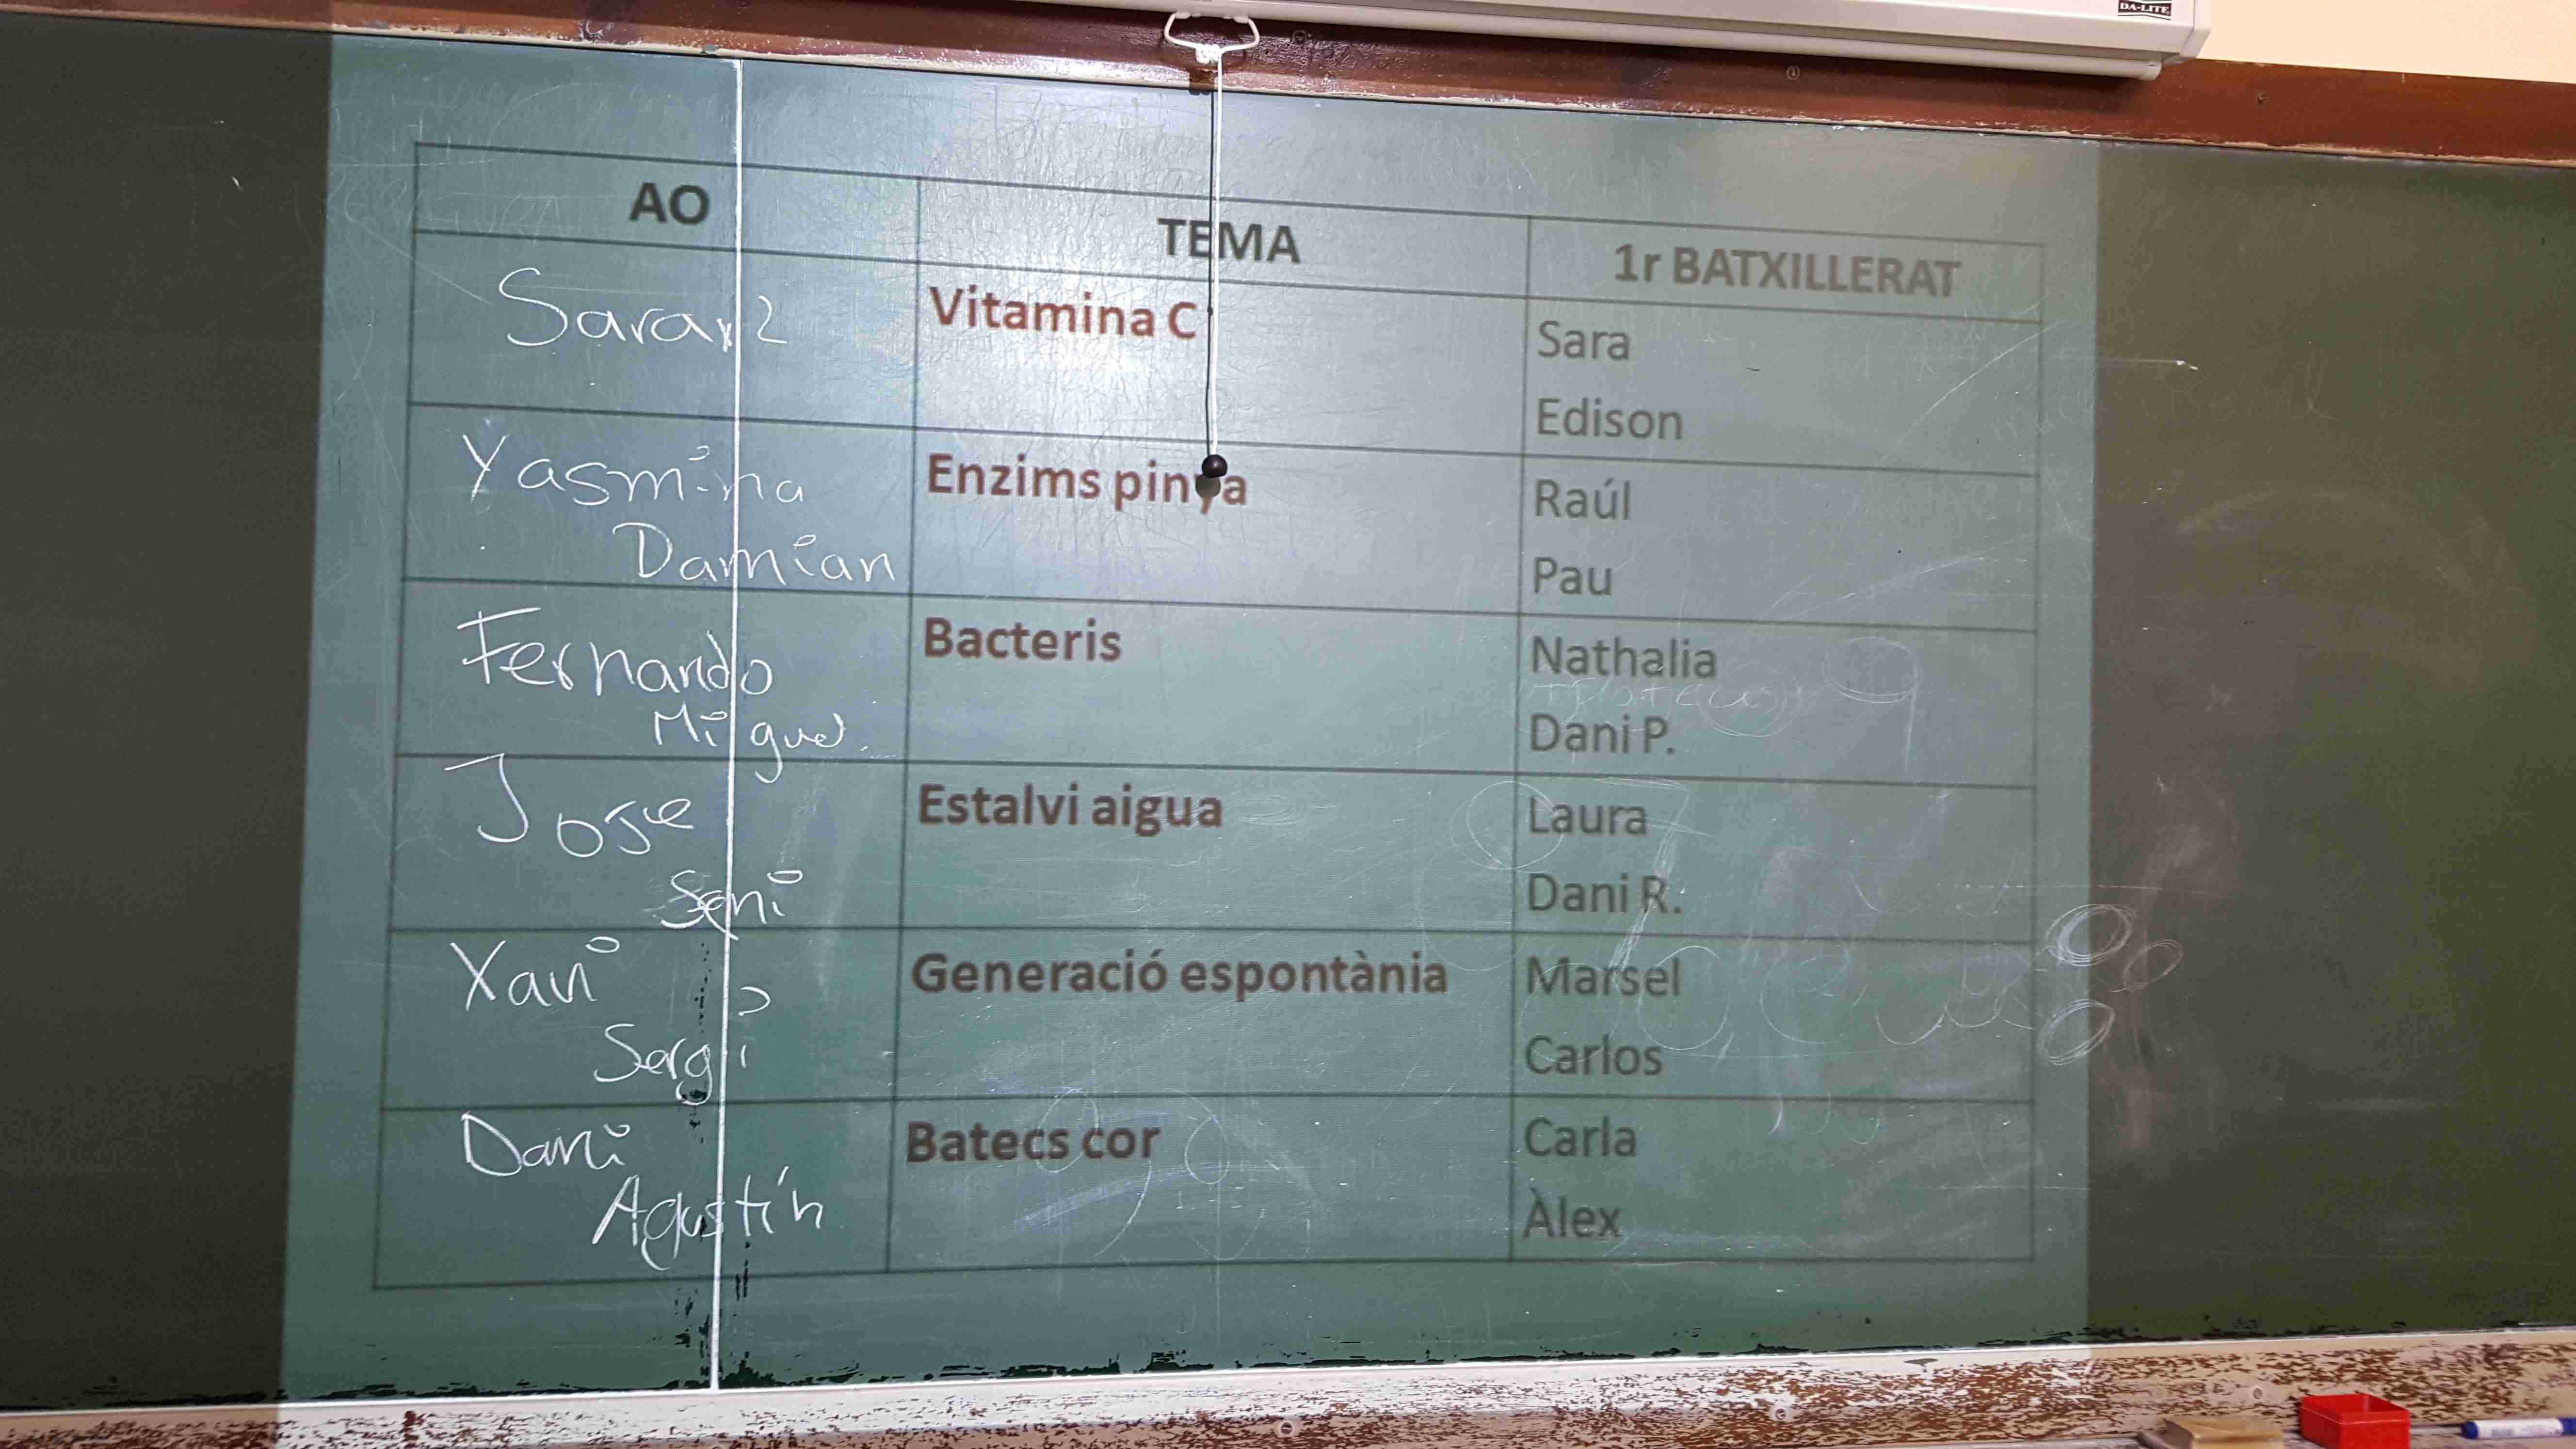 DA-LITE
AO TEMA 1r BATXILLERAT
Sara x 2 Vitamina C Sara
Edison
Yasmina Enzims pinya Raúl
Damian Pau
Fernando Bacteris Nathalia
Miguel Dani P.
Jose Estalvi aigua Laura
Dani R.
Xavi Generació espontània Marsel
Sergi Carlos
Dani Batecs cor Carla
Agustín Àlex